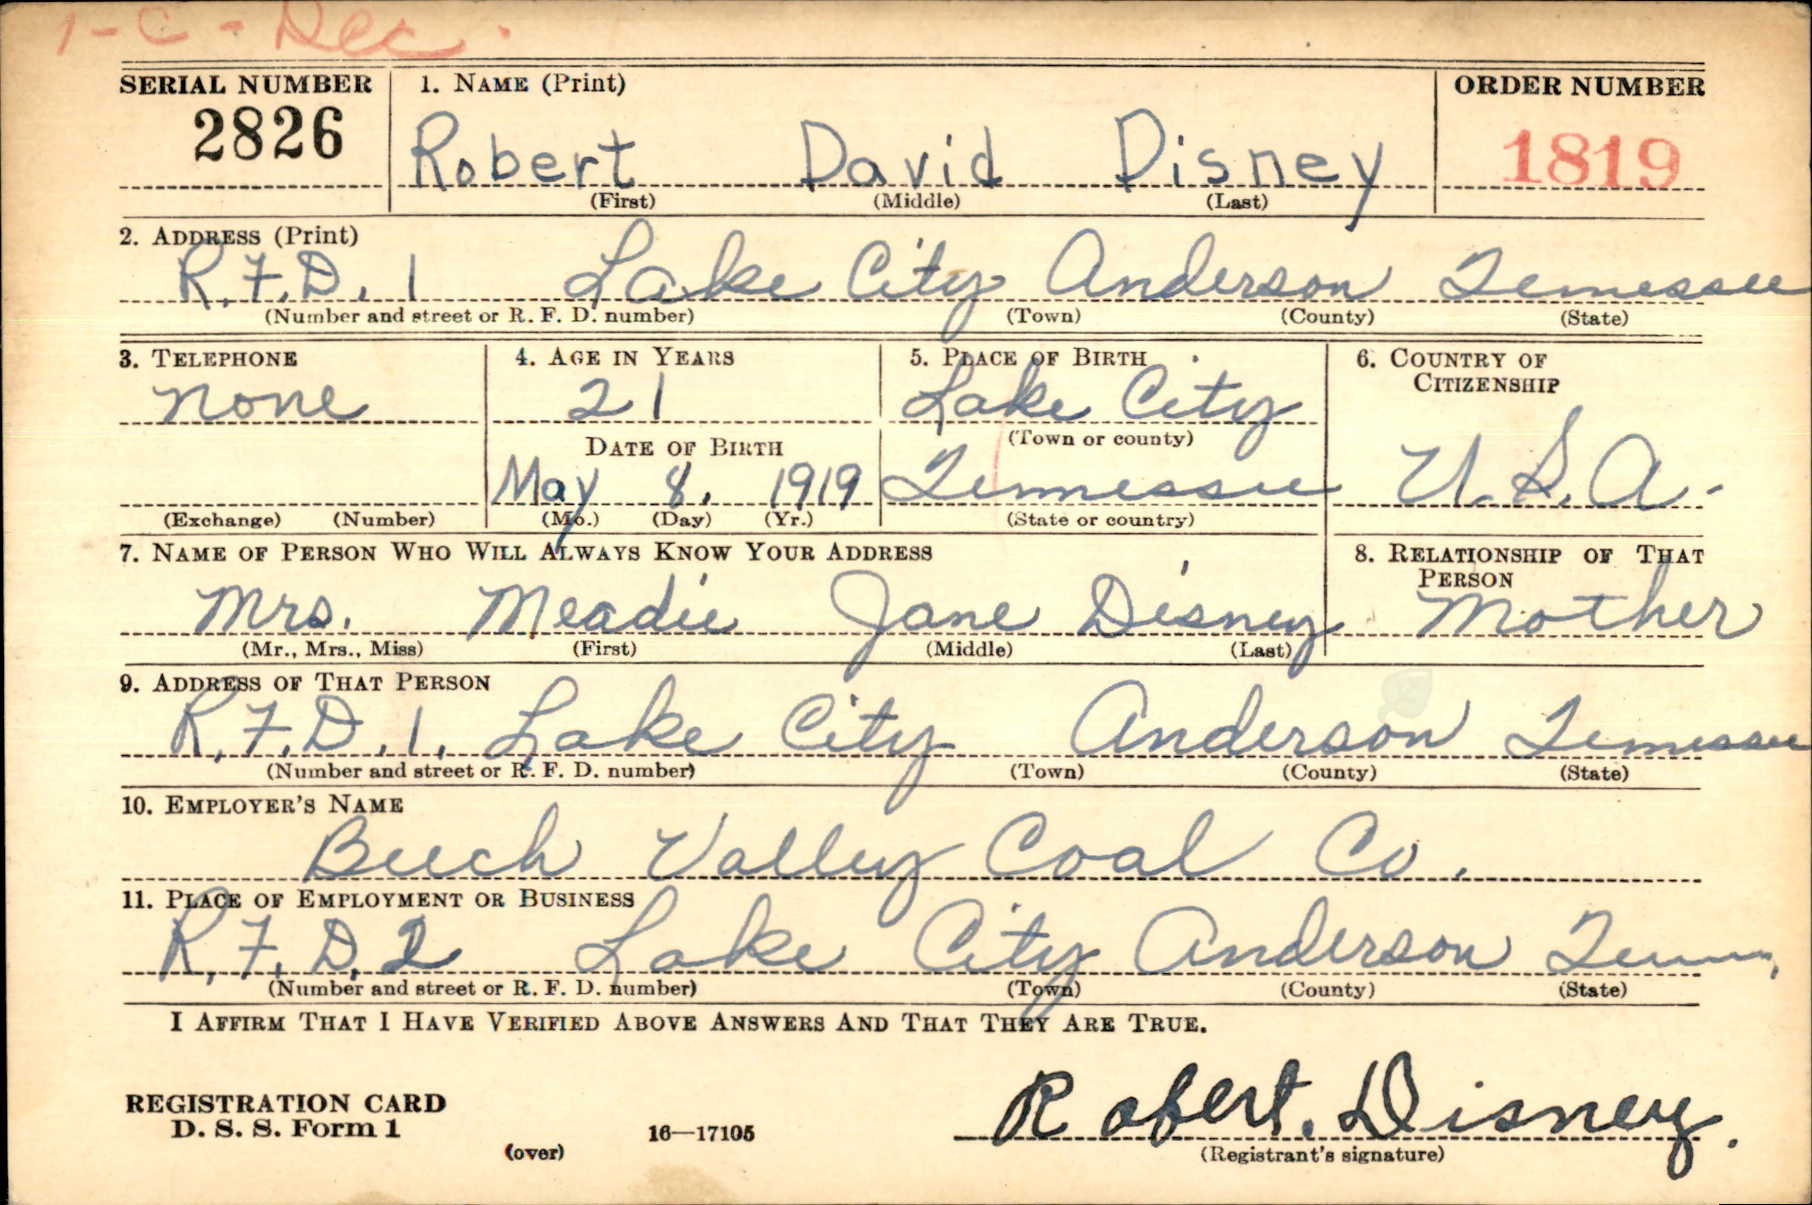 1-C - Dec.
SERIAL NUMBER 1. NAME (Print) ORDER NUMBER
2826 Robert David Disney 1819
(First) (Middle) (Last)
2. ADDRESS (Print)
R.F.D. 1 Lake City Anderson Tennessee
(Number and street or R. F. D. number) (Town) (County) (State)
3. TELEPHONE 4. AGE IN YEARS 5. PLACE OF BIRTH 6. COUNTRY OF
CITIZENSHIP
none 21 Lake City
DATE OF BIRTH (Town or county)
May 8, 1919 Tennessee U.S.A.
(Exchange) (Number) (Mo.) (Day) (Yr.) (State or country)
7. NAME OF PERSON WHO WILL ALWAYS KNOW YOUR ADDRESS 8. RELATIONSHIP OF THAT
PERSON
Mrs. Meadie Jane Disney Mother
(Mr., Mrs., Miss) (First) (Middle) (Last)
9. ADDRESS OF THAT PERSON
R.F.D. 1. Lake City Anderson Tennessee
(Number and street or R. F. D. number) (Town) (County) (State)
10. EMPLOYER'S NAME
Beech Valley Coal Co.
11. PLACE OF EMPLOYMENT OR BUSINESS
R.F.D. 2 Lake City Anderson Tenn.
(Number and street or R. F. D. number) (Town) (County) (State)
I AFFIRM THAT I HAVE VERIFIED ABOVE ANSWERS AND THAT THEY ARE TRUE.
REGISTRATION CARD
D. S. S. Form 1 Robert. Disney.
(over) 16—17105 (Registrant's signature)